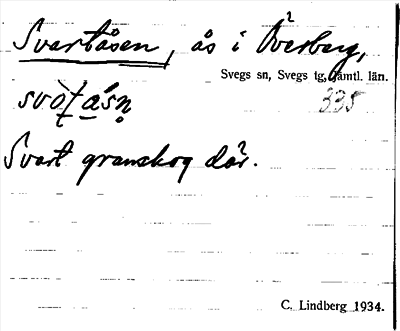 Svartåsen, ås i Överberg,
Svegs sn, Svegs tg, Jämtl. län.
335
Svart granskog där.
C. Lindberg 1934.